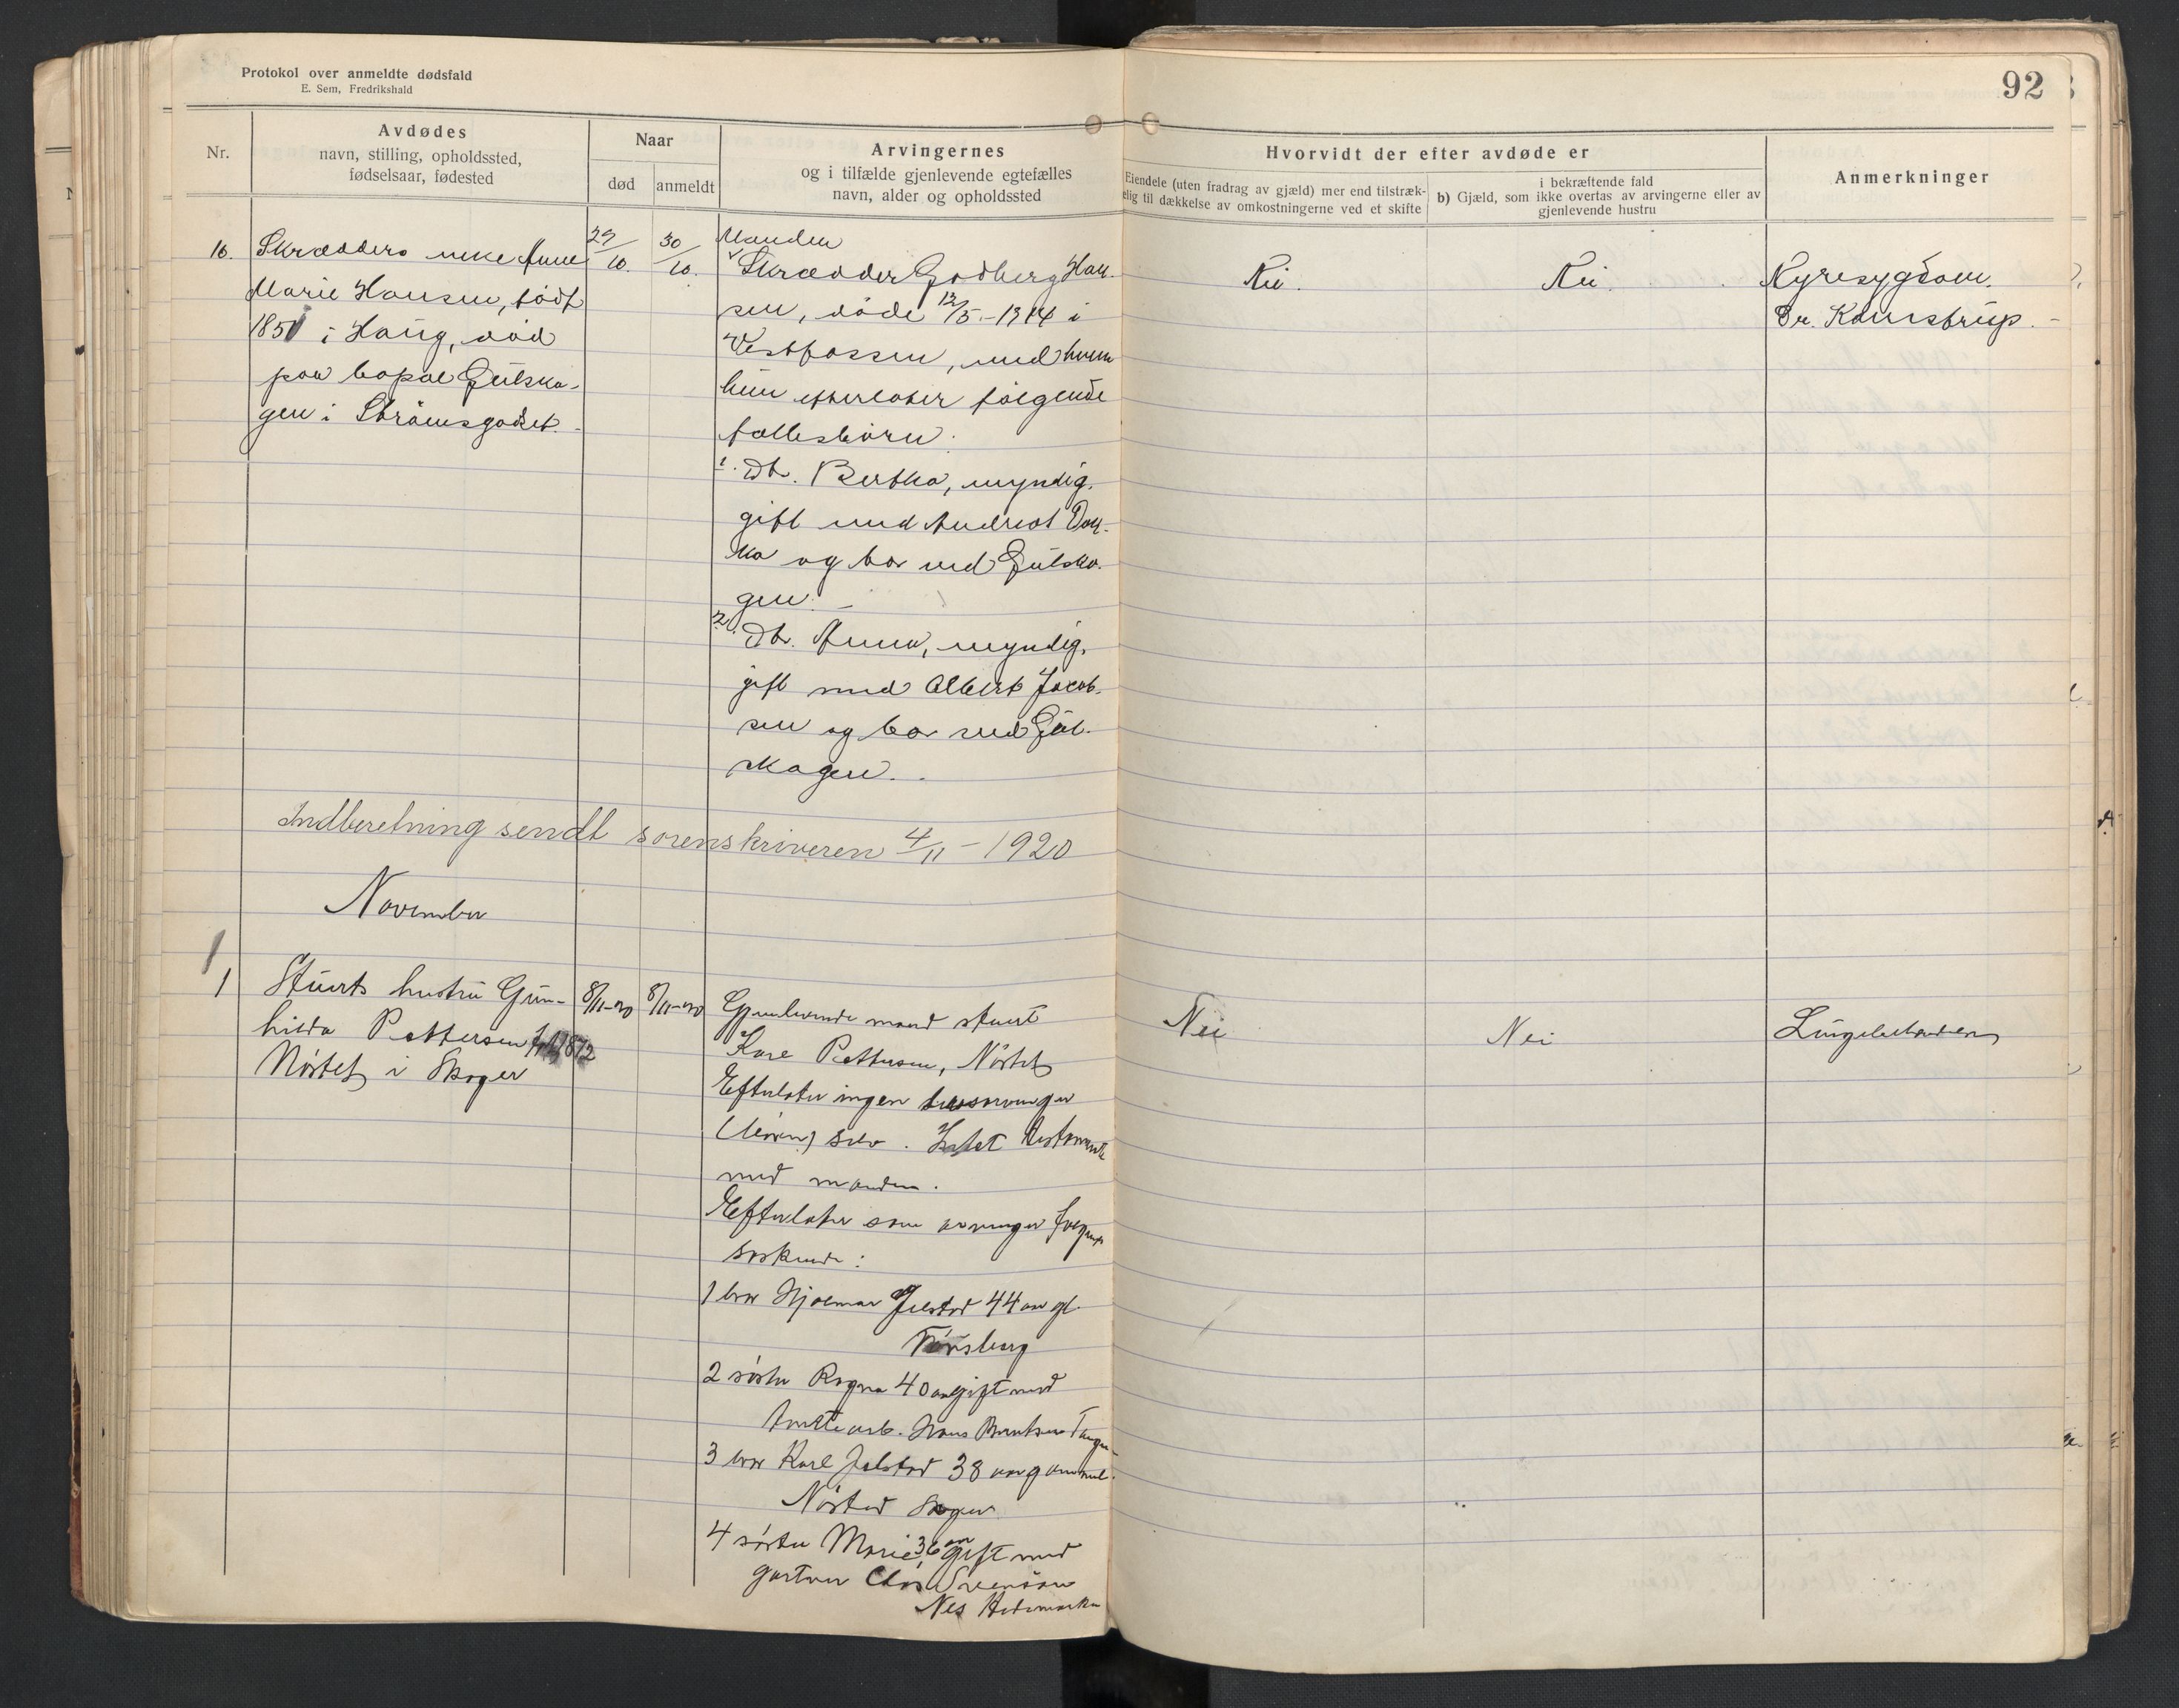 Protokol over anmeldte dødsfald
E. Sem, Fredrikshald
92
Nr.
Avdødes
navn, stilling, opholdssted,
fødselsaar, fødested
Naar
død
anmeldt
Arvingernes
og i tilfælde gjenlevende egtefælles
navn, alder og opholdssted
Hvorvidt der efter avdøde er
Eiendele (uten fradrag av gjæld) mer end tilstræk-
elig til dækkelse av omkostningerne ved et skifte
i bekræftende fald
b) Gjæld, som ikke overtas av arvingerne eller av
gjenlevende hustru
Anmerkninger
16.
Skrædders enke Anne
Marie Hansen, født
1851 i Haug, død
paa bopæl Gulsko-
gen i Strømsgodset.
29/10.
30/10.
Manden
Skrædder Godberg Han-
sen, døde 12/5.-1914 i
Vestfossen, med hvem
hun efterlater følgende
fællesbørn:
1. Dtr. Bertha, myndig,
gift med Andreas Dok-
ka og bor ved Gulsko-
gen. -
2. Dtr. Anna, myndig,
gift med Albert Jacob-
sen og bor ved Gul-
skogen.
Nei.
Nei.
Nyresygdom.
Dr. Kamstrup. -
Indberetning sendt sorenskriveren 4/11 - 1920
November
1
Stuerts hustru Gun-
hilda Pettersen f. 1872
Nøstet i Skoger
8/11-20
8/11-20
Gjenlevende mand stuert
Kare Pettersen, Nøstet
Efterlater ingen livsarvinger
(børn) selv. Intet testamente
med manden.
Efterlater som arvinger følgende
søskende:
1 bror Hjalmar Jelstad 44 aar gl.
Tønsberg
2 søster Ragna 40 aar gift med
arb. Hans Berntsen Tangen
3 bror Karl Jelstad 38 aar gammel.
Nøsted Skoger
4 søster Marie, 36 aar gift med
gartner Svensen
Nes Hedemarken
Nei
Nei
Lungebetændelse